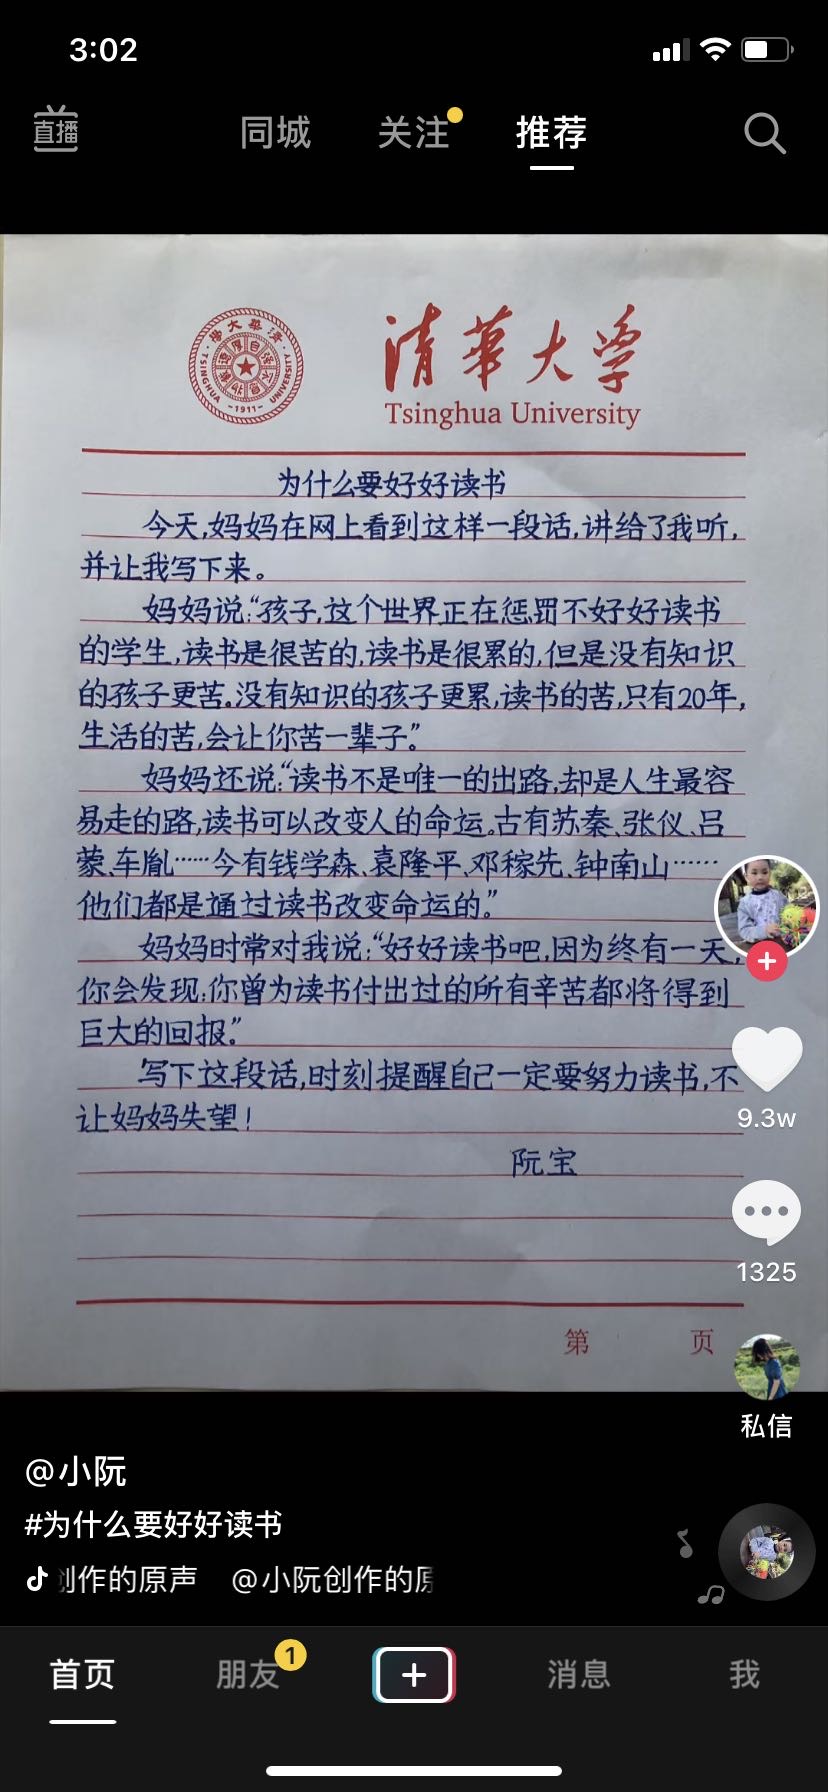 3:02
直播
同城
关注
推荐
清華大学
TSINGHUA UNIVERSITY
-1911-
清華大学
Tsinghua University
为什么要好好读书
今天,妈妈在网上看到这样一段话,讲给了我听,
并让我写下来。
妈妈说:“孩子,这个世界正在惩罚不好好读书
的学生,读书是很苦的,读书是很累的,但是没有知识
的孩子更苦。没有知识的孩子更累,读书的苦,只有20年,
生活的苦,会让你苦一辈子”
妈妈还说:“读书不是唯一的出路,却是人生最容
易走的路,读书可以改变人的命运。古有苏秦、张仪、吕
蒙、车胤……今有钱学森、袁隆平、邓稼先、钟南山……
他们都是通过读书改变命运的。”
妈妈时常对我说:“好好读书吧,因为终有一天,
你会发现:你曾为读书付出过的所有辛苦都将得到
巨大的回报。”
写下这段话,时刻提醒自己一定要努力读书,不
让妈妈失望!
阮宝
第 页
9.3w
1325
私信
@小阮
#为什么要好好读书
创作的原声 @小阮创作的原
首页
朋友
1
消息
我